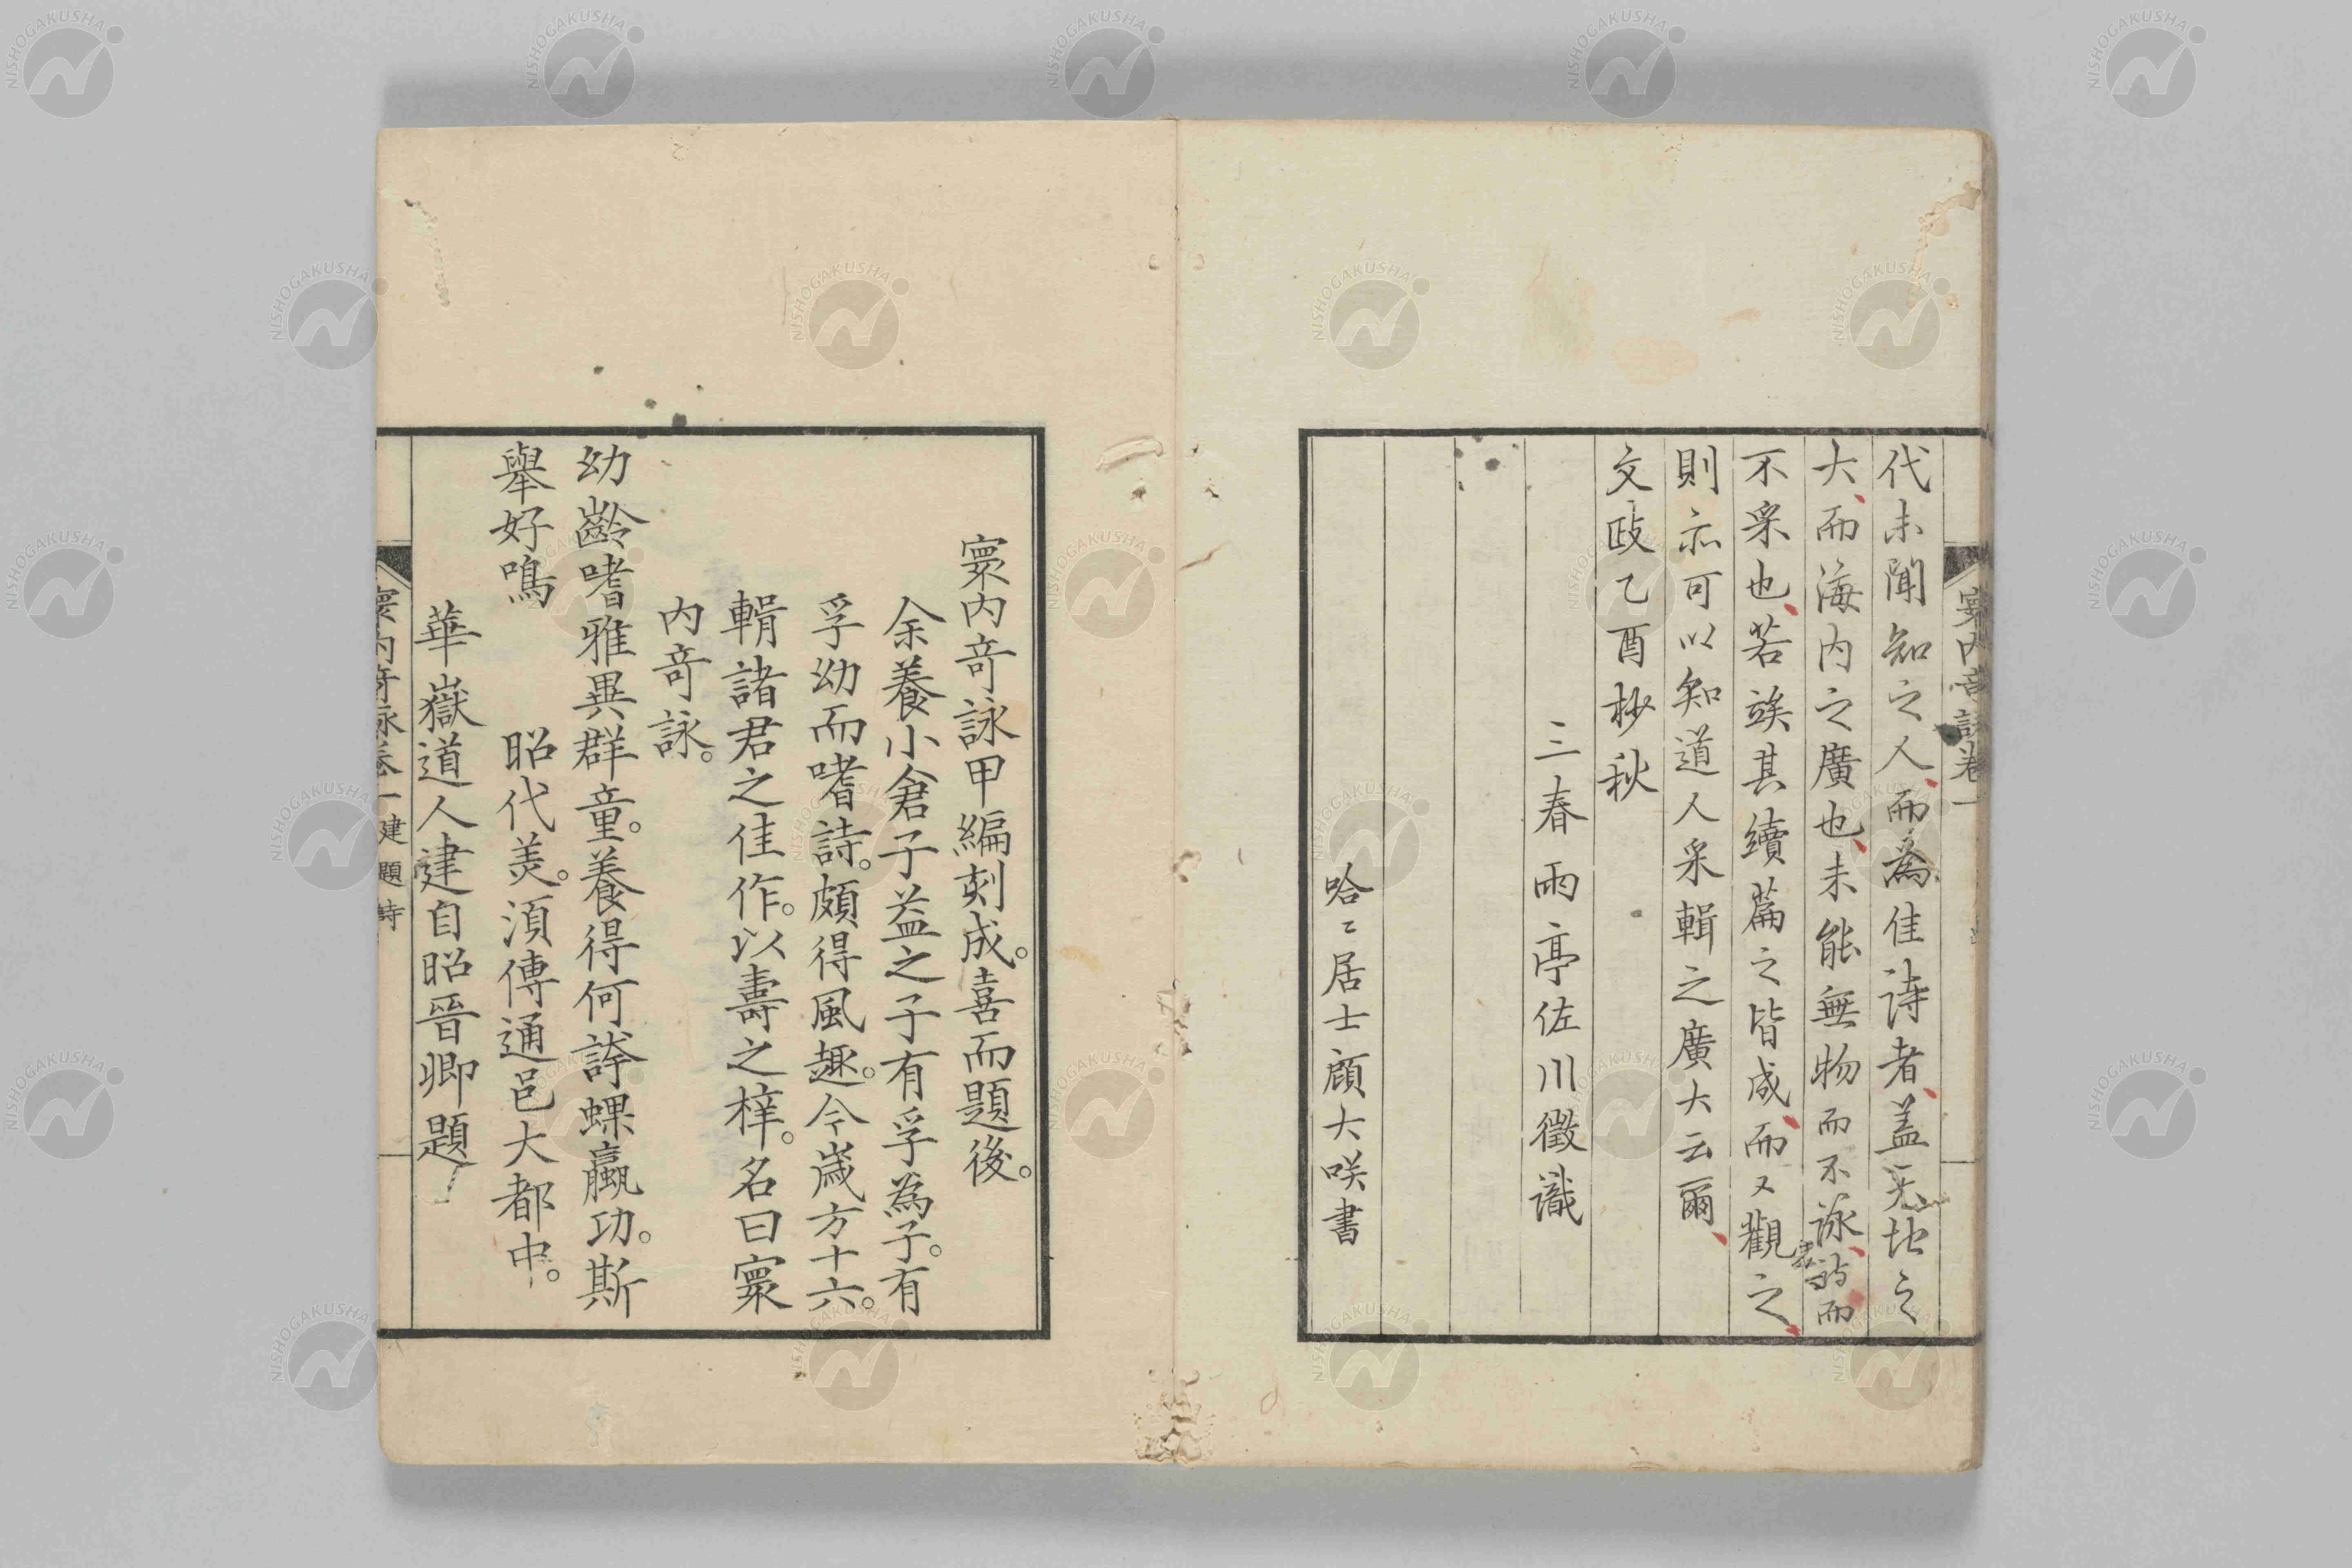 代未聞知之人而為佳詩者蓋天地之
大而海内之廣也未能無物而不詠詩而
不采也若竢其續篇之皆成而又觀之
則亦可以知道人采輯之廣大云爾
文政乙酉杪秋
三春雨亭佐川徵識
哈〻居士顧大咲書
寰内奇詠卷一
寰内竒詠甲編刻成。喜而題後。
余養小倉子益之子有孚為子。有
孚幼而嗜詩。頗得風趣。今嵗方十六。
輯諸君之佳作。以壽之梓。名曰寰
内竒詠。
幼齡嗜雅異群童。養得何誇蜾蠃功。斯
舉好鳴
昭代美。須傳通邑大都中。
華嶽道人建自昭晉卿題
寰内奇詠卷一 建題詩
NISHOGAKUSHA